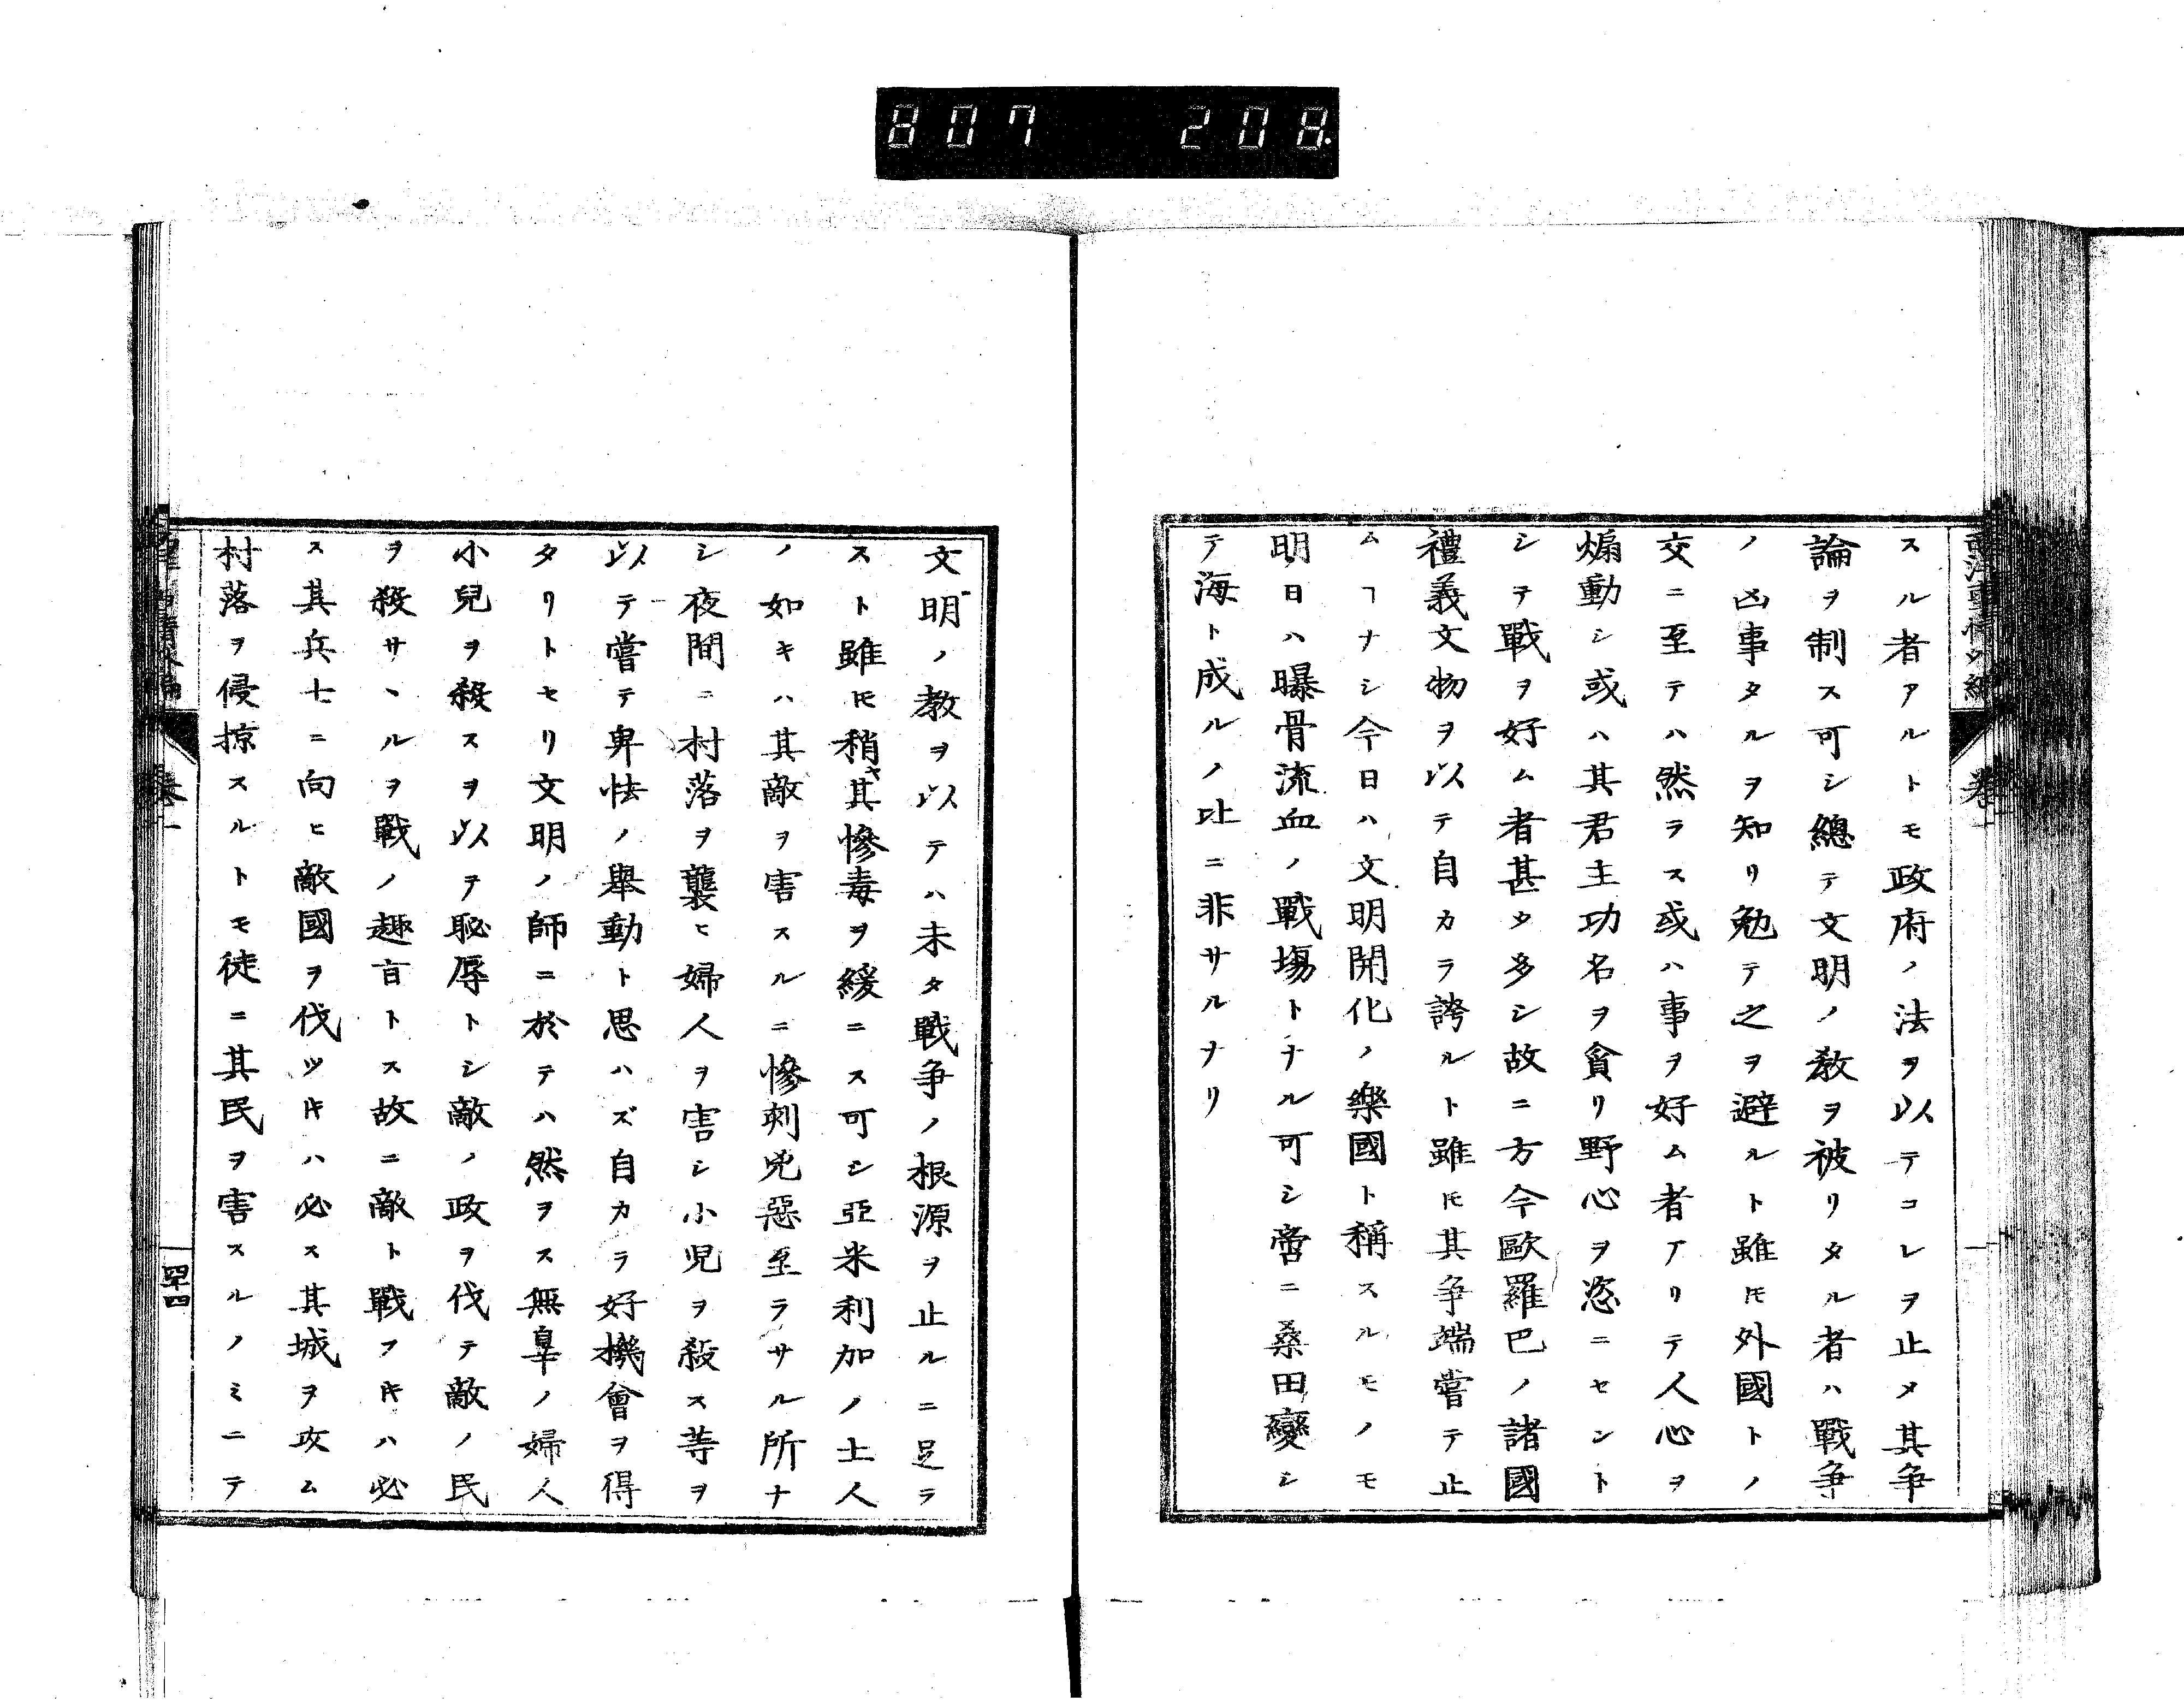 807 208
スル者アルトモ政府ノ法ヲ以テコレヲ止メ其争
論ヲ制ス可シ總テ文明ノ教ヲ被リタル者ハ戰争
ノ凶事タルヲ知リ勉テ之ヲ避ルト雖𪜈外國トノ
交ニ至テハ然ラス或ハ事ヲ好ム者アリテ人心ヲ
煽動シ或ハ其君主功名ヲ貪リ野心ヲ恣ニセント
シテ戰ヲ好ム者甚タ多シ故ニ方今歐羅巴ノ諸國
禮義文物ヲ以テ自カラ誇ルト雖𪜈其争端嘗テ止
ムヿナシ今日ハ文明開化ノ樂國ト稱スルモノモ
明日ハ曝骨流血ノ戰塲トナル可シ啻ニ桑田變シ
テ海ト成ルノ比ニ非サルナリ
文明ノ教ヲ以テハ未タ戰争ノ根源ヲ止ルニ足ラ
スト雖𪜈稍其慘毒ヲ緩ニス可シ亞米利加ノ土人
ノ如キハ其敵ヲ害スルニ慘刺兇惡至ラサル所ナ
シ夜間ニ村落ヲ襲ヒ婦人ヲ害シ小児ヲ殺ス等ヲ
以テ嘗テ卑怯ノ舉動ト思ハズ自カラ好機會ヲ得
タリトセリ文明ノ師ニ於テハ然ヲス無辜ノ婦人
小兒ヲ殺スヲ以テ恥辱トシ敵ノ政ヲ伐テ敵ノ民
ヲ殺サヽルヲ戰ノ趣旨トス故ニ敵ト戰フキハ必
ス其兵士ニ向ヒ敵國ヲ伐ツキハ必ス其城ヲ攻ム
村落ヲ侵掠スルトモ徒ニ其民ヲ害スルノミニテ
卷一
四十四